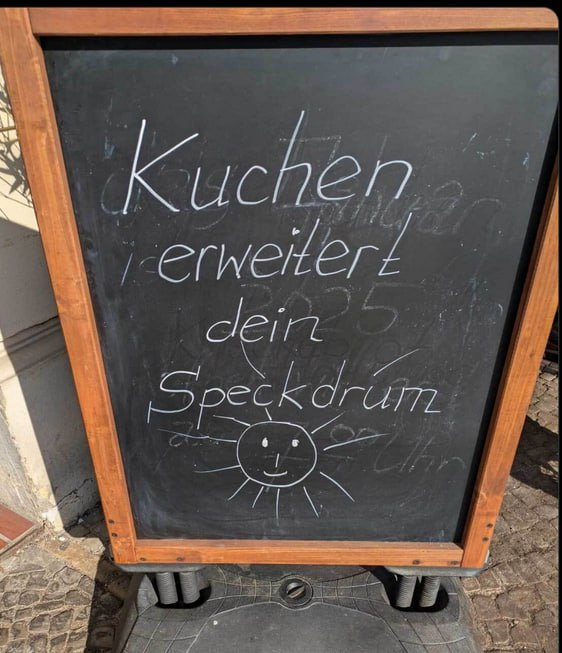 Kuchen
erweitert
dein
Speckdrum
2025
Uhr